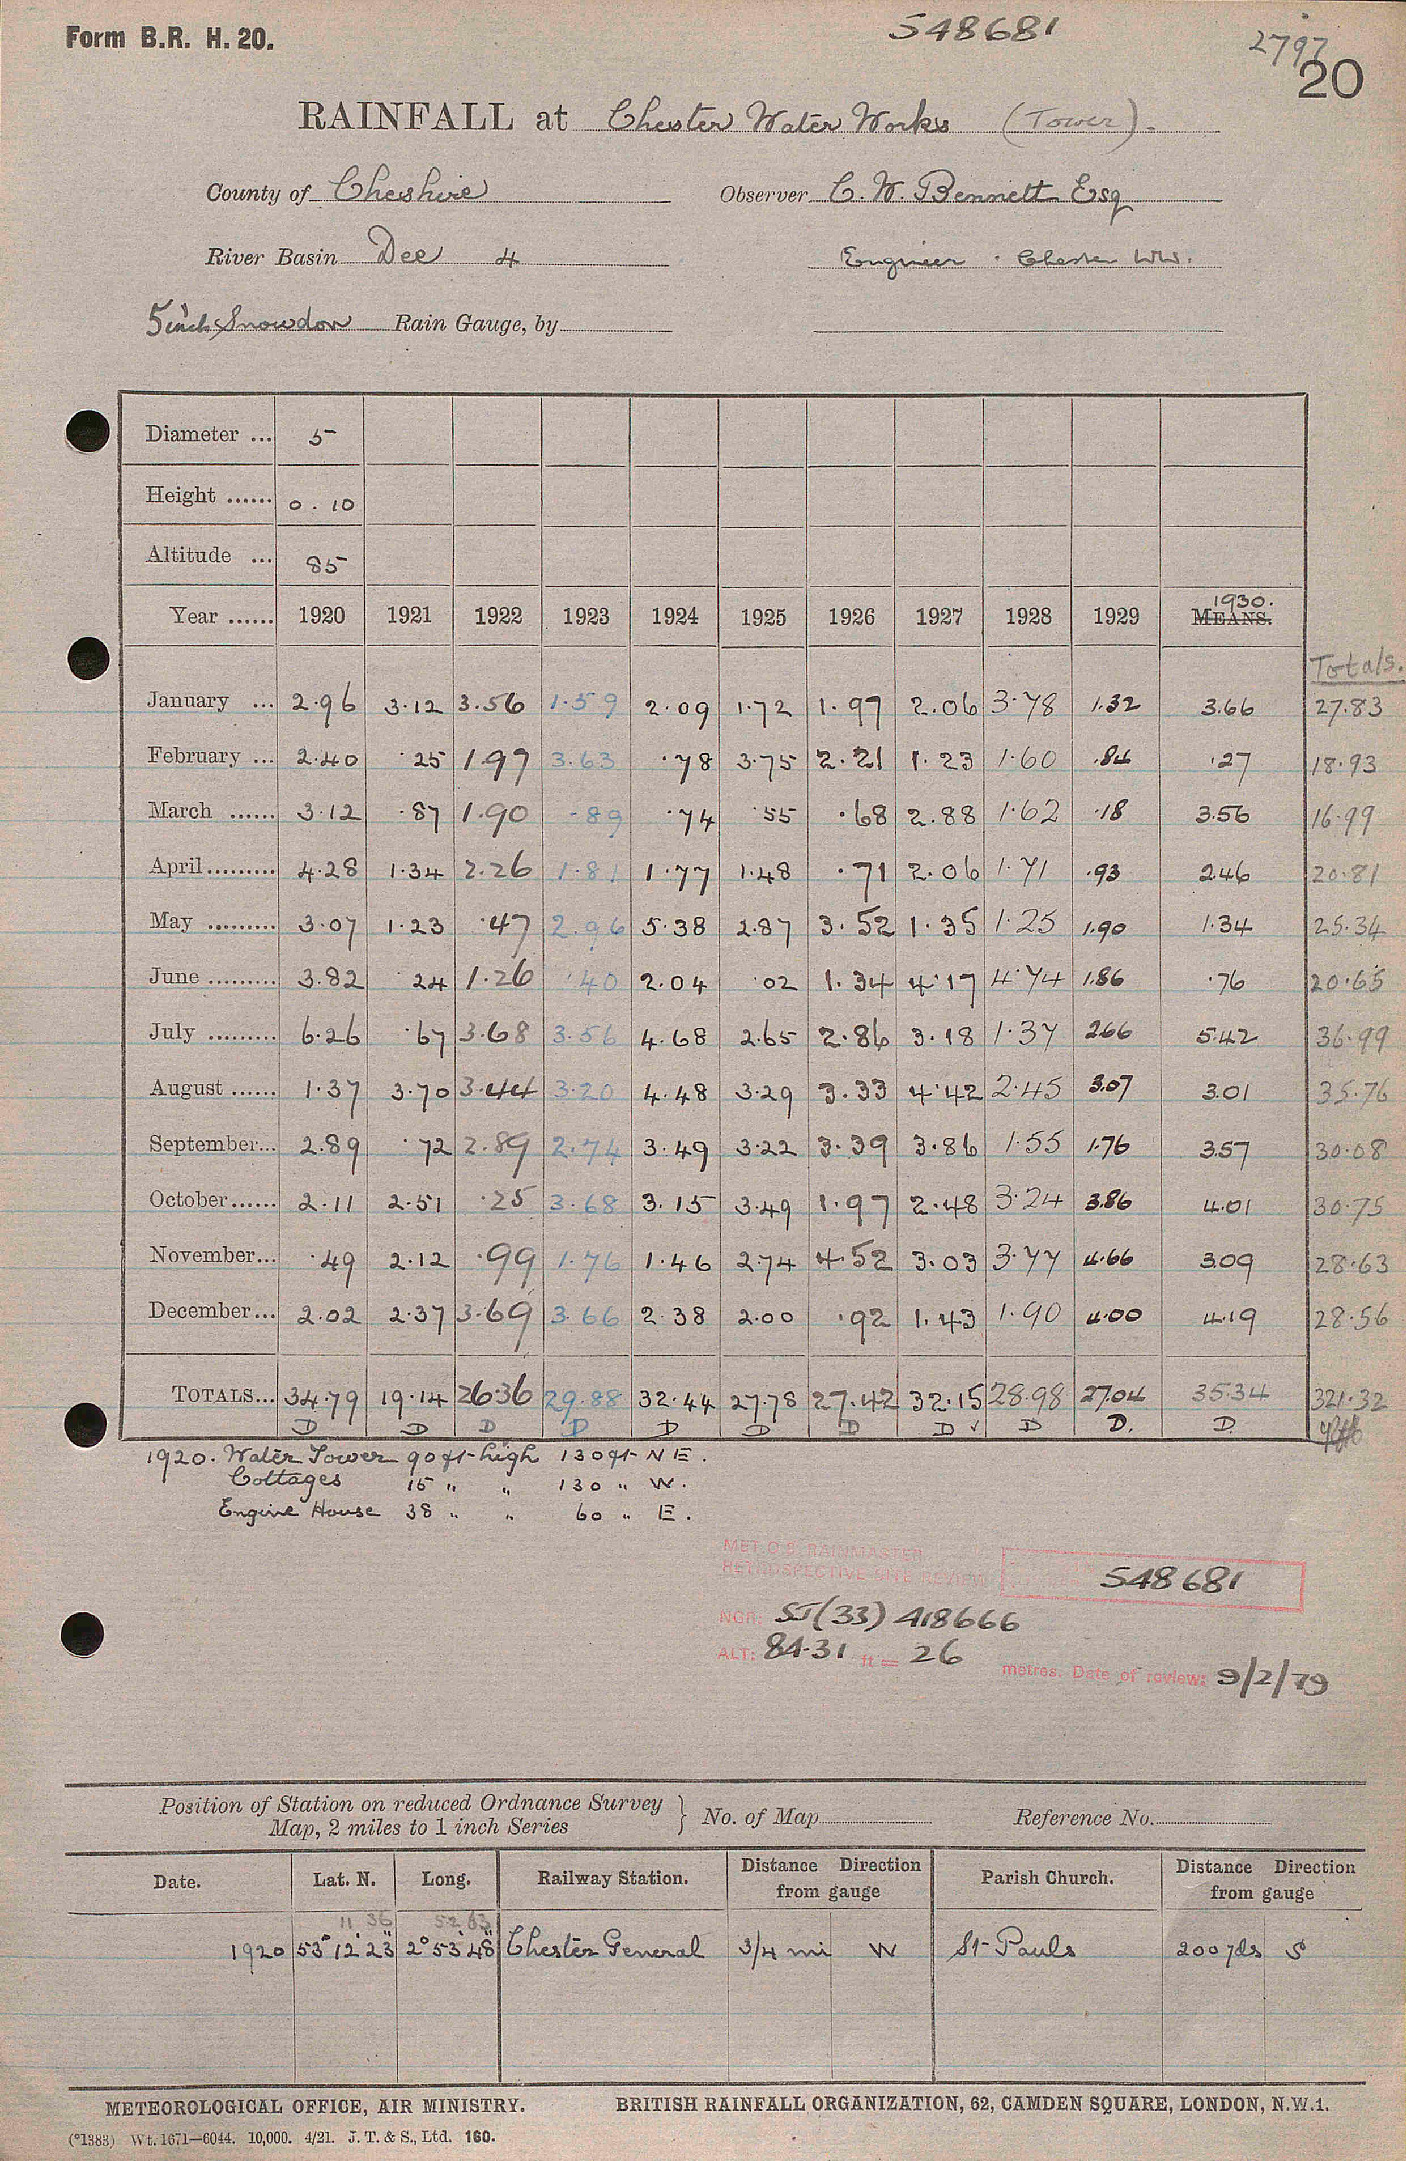 Form B.R. H. 20.
548681
2797
20
RAINFALL at Chester Water Works (Tower).
County of Cheshire Observer C. W. Bennett Esq
River Basin Dee 4 Engineer · Chester WW.
5 inch Snowdon Rain Gauge, by
Diameter ... 5
Height ...... 0.10
Altitude ... 85
Year ...... 1920 1921 1922 1923 1924 1925 1926 1927 1928 1929 1930. MEANS.
Totals.
January ... 2.96 3.12 3.56 1.59 2.09 1.72 1.97 2.06 3.78 1.32 3.66 27.83
February ... 2.40 .25 1.97 3.63 .78 3.75 2.21 1.23 1.60 .84 .27 18.93
March ...... 3.12 .87 1.90 .89 .74 .55 .68 2.88 1.62 .18 3.56 16.99
April ......... 4.28 1.34 2.26 1.81 1.77 1.48 .71 2.06 1.71 .93 2.46 20.81
May ......... 3.07 1.23 .47 2.96 5.38 2.87 3.52 1.35 1.25 1.90 1.34 25.34
June ......... 3.82 .24 1.26 .40 2.04 .02 1.34 4.17 4.74 1.86 .76 20.65
July ......... 6.26 .67 3.68 3.56 4.68 2.65 2.86 3.18 1.37 2.66 5.42 36.99
August ...... 1.37 3.70 3.44 3.20 4.48 3.29 3.33 4.42 2.45 3.07 3.01 35.76
September... 2.89 .72 2.89 2.74 3.49 3.22 3.39 3.86 1.55 1.76 3.57 30.08
October ...... 2.11 2.51 .25 3.68 3.15 3.49 1.97 2.48 3.24 3.86 4.01 30.75
November... .49 2.12 .99 1.76 1.46 2.74 4.52 3.03 3.77 4.66 3.09 28.63
December... 2.02 2.37 3.69 3.66 2.38 2.00 .92 1.43 1.90 4.00 4.19 28.56
TOTALS... 34.79 19.14 26.36 29.88 32.44 27.78 27.42 32.15 28.98 27.04 35.34 321.32
D D D D D D D D ✓ D D. D
1920. Water Tower 90 ft high 130 ft N E.
Cottages 15 " " 130 " W.
Engine House 38 " " 60 " E.
MET.O.8 RAINMASTER
RETROSPECTIVE SITE REVIEW
548681
NGR: SJ(33) 418666
ALT: 84.31 ft = 26 metres. Date of review: 9/2/79
Position of Station on reduced Ordnance Survey
Map, 2 miles to 1 inch Series } No. of Map Reference No.
Date. Lat. N. Long. Railway Station. Distance Direction from gauge Parish Church. Distance Direction from gauge
11 36 52 83
1920 53° 12' 23" 2° 53' 48" Chester General 3/4 mi W St Pauls 200 yds S
METEOROLOGICAL OFFICE, AIR MINISTRY. BRITISH RAINFALL ORGANIZATION, 62, CAMDEN SQUARE, LONDON, N.W.1.
(°1383) Wt. 1671—6044. 10,000. 4/21. J. T. & S., Ltd. 160.